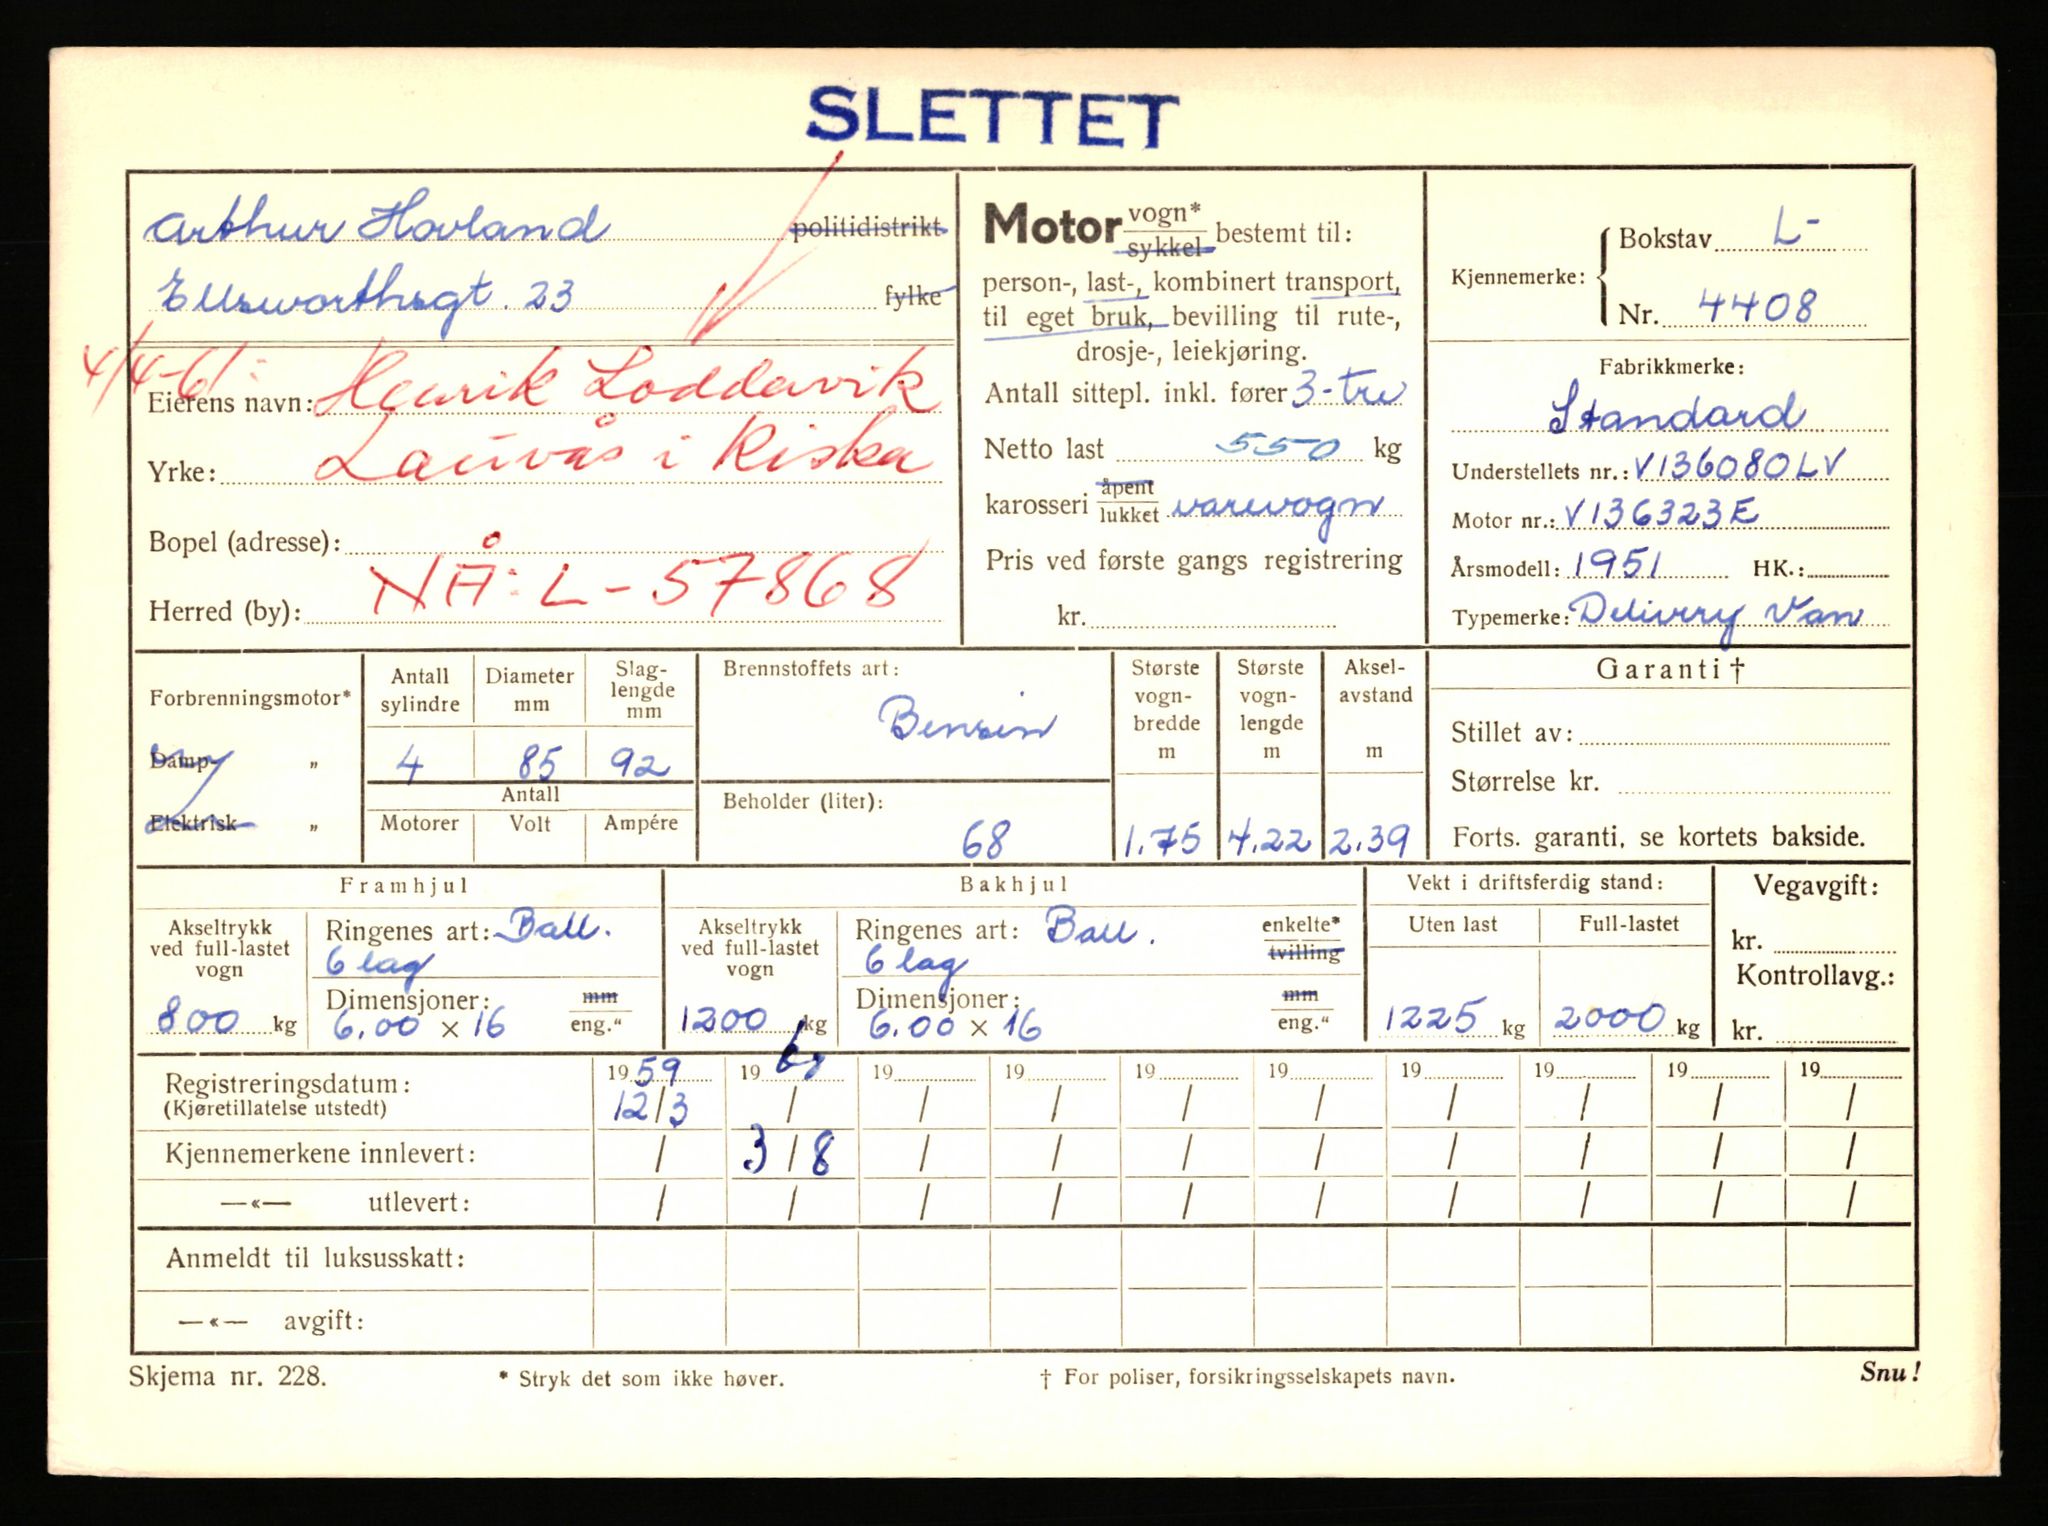 SLETTET
Arthur Hovland politidistrikt
Ellsworthsgt. 23 fylke
4/4-61:
Eierens navn: Henrik Loddervik
Yrke: Lauvås i Riska
Bopel (adresse):
Herred (by): NÅ: L-57868
Motor vogn* sykkel bestemt til:
person-, last-, kombinert transport,
til eget bruk, bevilling til rute-,
drosje-, leiekjøring.
Antall sittepl. inkl. fører 3-tre
Netto last 550 kg
karosseri åpent lukket varevogn
Pris ved første gangs registrering
kr.
Kjennemerke: Bokstav L-
Nr. 4408
Fabrikkmerke:
Standard
Understellets nr.: V136080LV
Motor nr.: V136323E
Årsmodell: 1951 HK.:
Typemerke: Delivry Van
Forbrenningsmotor*
Damp „
Elektrisk „
Antall sylindre
4
Diameter mm
85
Slag-
lengde
mm
92
Antall
Motorer Volt Ampére
Brennstoffets art:
Bensin
Beholder (liter):
68
Største
vogn-
bredde
m
1.75
Største
vogn-
lengde
m
4.22
Aksel-
avstand
m
2.39
Garanti †
Stillet av:
Størrelse kr.
Forts. garanti, se kortets bakside.
Framhjul
Akseltrykk
ved full-lastet
vogn
800 kg
Ringenes art: Ball.
6 lag
Dimensjoner: mm
6.00 × 16 eng."
Bakhjul
Akseltrykk
ved full-lastet
vogn
1200 kg
Ringenes art: Ball. enkelte* tvilling
6 lag
Dimensjoner: mm
6.00 × 16 eng."
Vekt i driftsferdig stand:
Uten last Full-lastet
1225 kg 2000 kg
Vegavgift:
kr.
Kontrollavg.:
kr.
Registreringsdatum: 1959 19 19 19 19 19 19 19 19 19
(Kjøretillatelse utstedt) 12/3 / / / / / / / / /
Kjennemerkene innlevert: / 3/8 / / / / / / / /
—«— utlevert: / / / / / / / / / /
Anmeldt til luksusskatt:
—«— avgift:
Skjema nr. 228. * Stryk det som ikke høver. † For poliser, forsikringsselskapets navn. Snu!